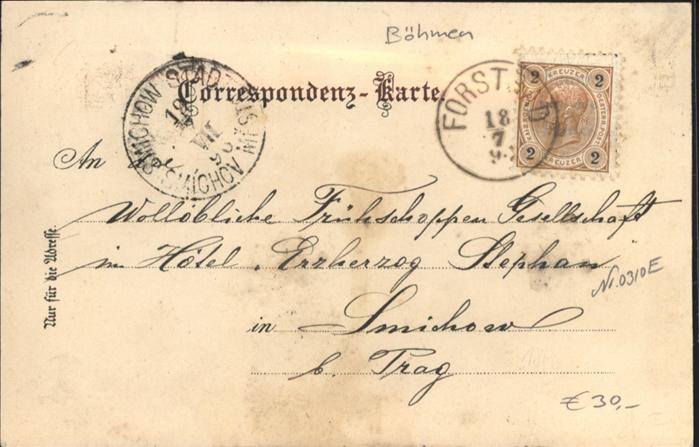 Böhmen
Correspondenz-Karte
SMICHOW STADT
SMICHOV
18
VII
FORST
18
7
2 KREUZER 2
2 KREUZER 2
An
Wollöbliche Frühschoppen Gesellschaft
im Hôtel „Erzherzog Stephan
in Smichow
b. Prag
Nur für die Adresse
Nr. 0310E
€ 30,-